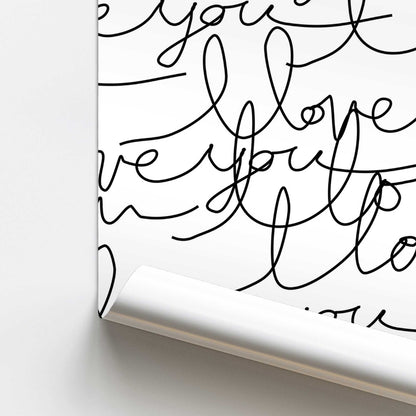 e you
I love
ve you
I lo
I lo
you